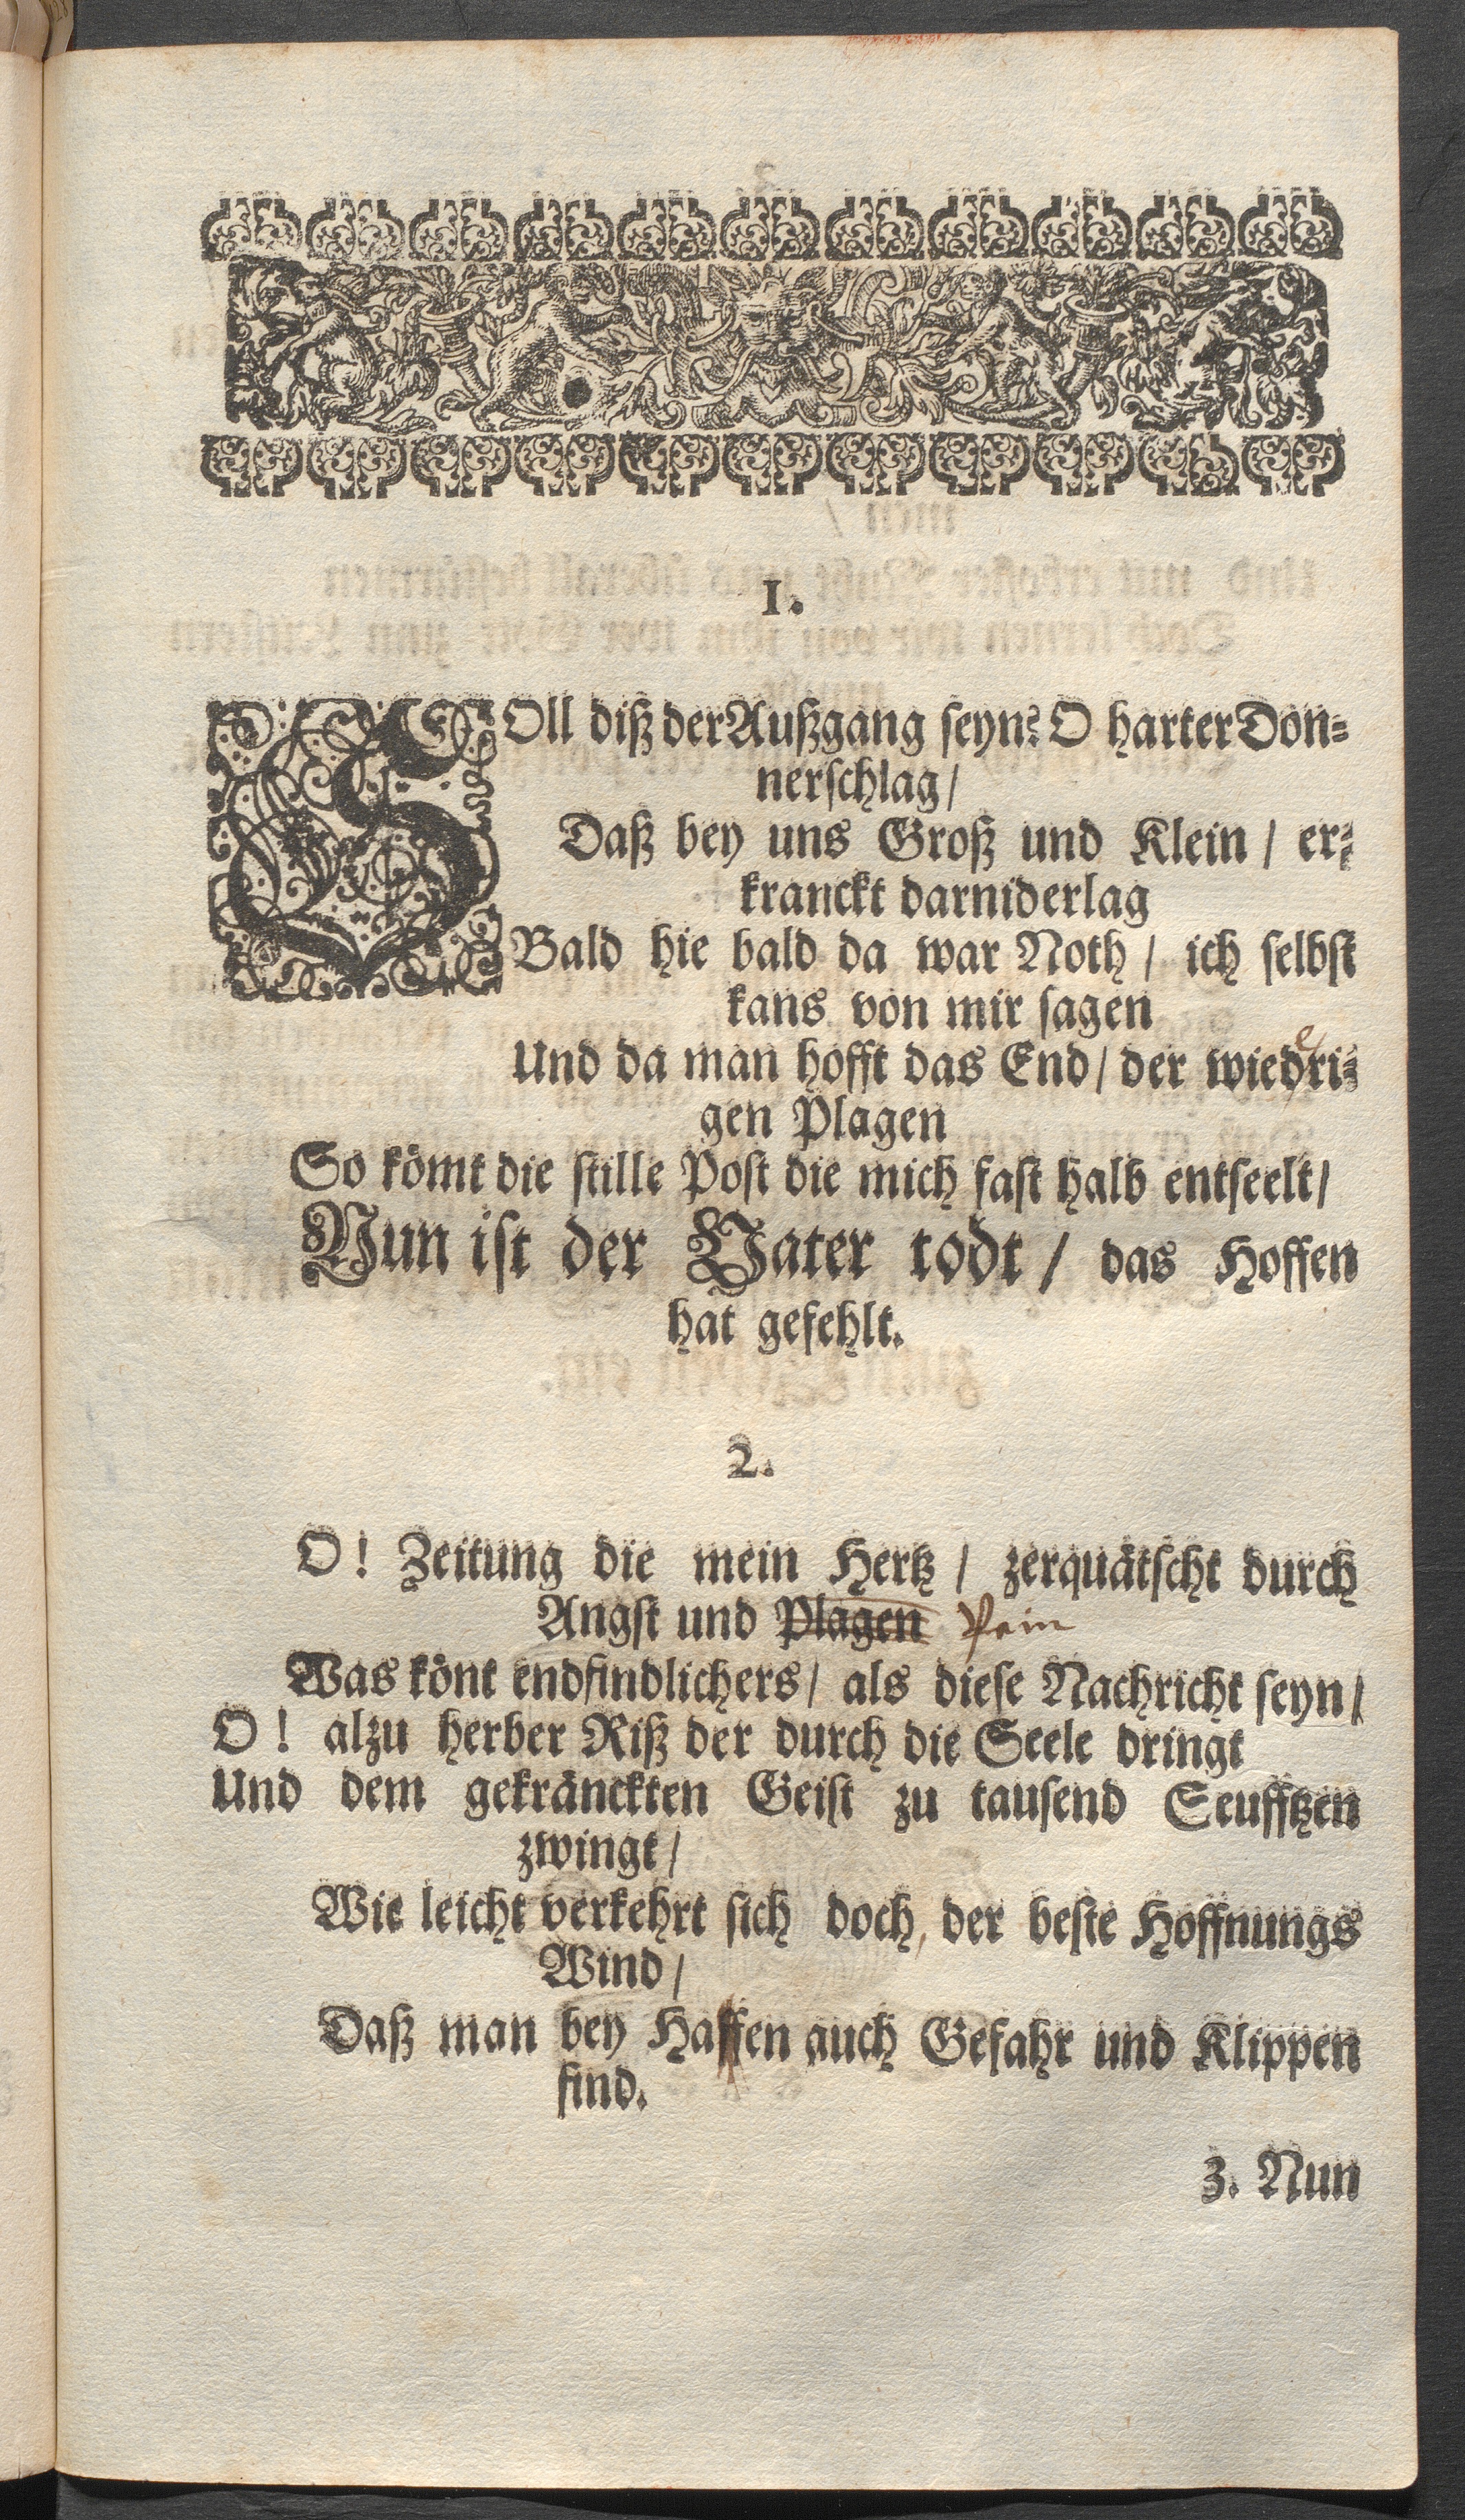 1.
SOll diß der Außgang seyn? O harter Don⸗
nerschlag /
Daß bey uns Groß und Klein / er⸗
kranckt darniderlag
Bald hie bald da war Noth / ich selbst
kans von mir sagen
e
Und da man hofft das End / der wiedri⸗
gen Plagen
So kömt die stille Post die mich fast halb entseelt /
Nun ist der Vater todt / das Hoffen
hat gefehlt.
2.
O! Zeitung die mein Hertz / zerquätscht durch
Angst und Plagen Pein
Was könt endfindlichers / als diese Nachricht seyn /
O! alzu herber Riß der durch die Seele dringt
Und dem gekränckten Geist zu tausend Seufftzen
zwingt /
Wie leicht verkehrt sich doch, der beste Hoffnungs
Wind /
Daß man bey Haffen auch Gefahr und Klippen
find.
3. Nun